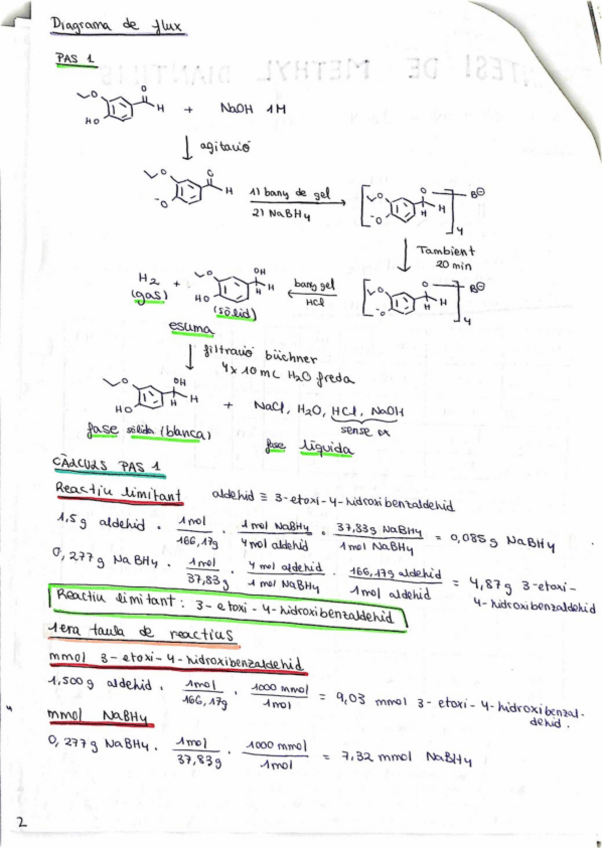 Diagrama de flux
PAS 1
O
O
H
HO
+ NaOH 1M
agitació
O
O
H
-O
1) bany de gel
2) NaBH4
O
O
H
H
-O
4
B⊖
Tambient
20 min
O
O
H
H
-O
4
B⊖
bany gel
HCl
H2
(gas)
+
O
OH
H
H
HO
(sòlid)
escuma
filtració büchner
4 x 10 mL H2O freda
O
OH
H
H
HO
+ NaCl, H2O, HCl, NaOH
fase sòlida (blanca)
fase líquida
CÀLCULS PAS 1
Reactiu limitant aldehid ≡ 3-etoxi-4-hidroxibenzaldehid
1,5 g aldehid · 1mol / 166,17g · 1 mol NaBH4 / 4 mol aldehid · 37,83g NaBH4 / 1 mol NaBH4 = 0,085 g NaBH4
0,277g NaBH4 · 1mol / 37,83g · 4 mol aldehid / 1 mol NaBH4 · 166,17g aldehid / 1mol aldehid = 4,87g 3-etoxi-
4-hidroxibenzaldehid
Reactiu limitant: 3-etoxi-4-hidroxibenzaldehid
1era taula de reactius
mmol 3-etoxi-4-hidroxibenzaldehid
1,500g aldehid · 1mol / 166,17g · 1000 mmol / 1mol = 9,03 mmol 3-etoxi-4-hidroxibenzal-
dehid.
mmol NaBH4
0,277g NaBH4 · 1mol / 37,83g · 1000 mmol / 1mol = 7,32 mmol NaBH4
2